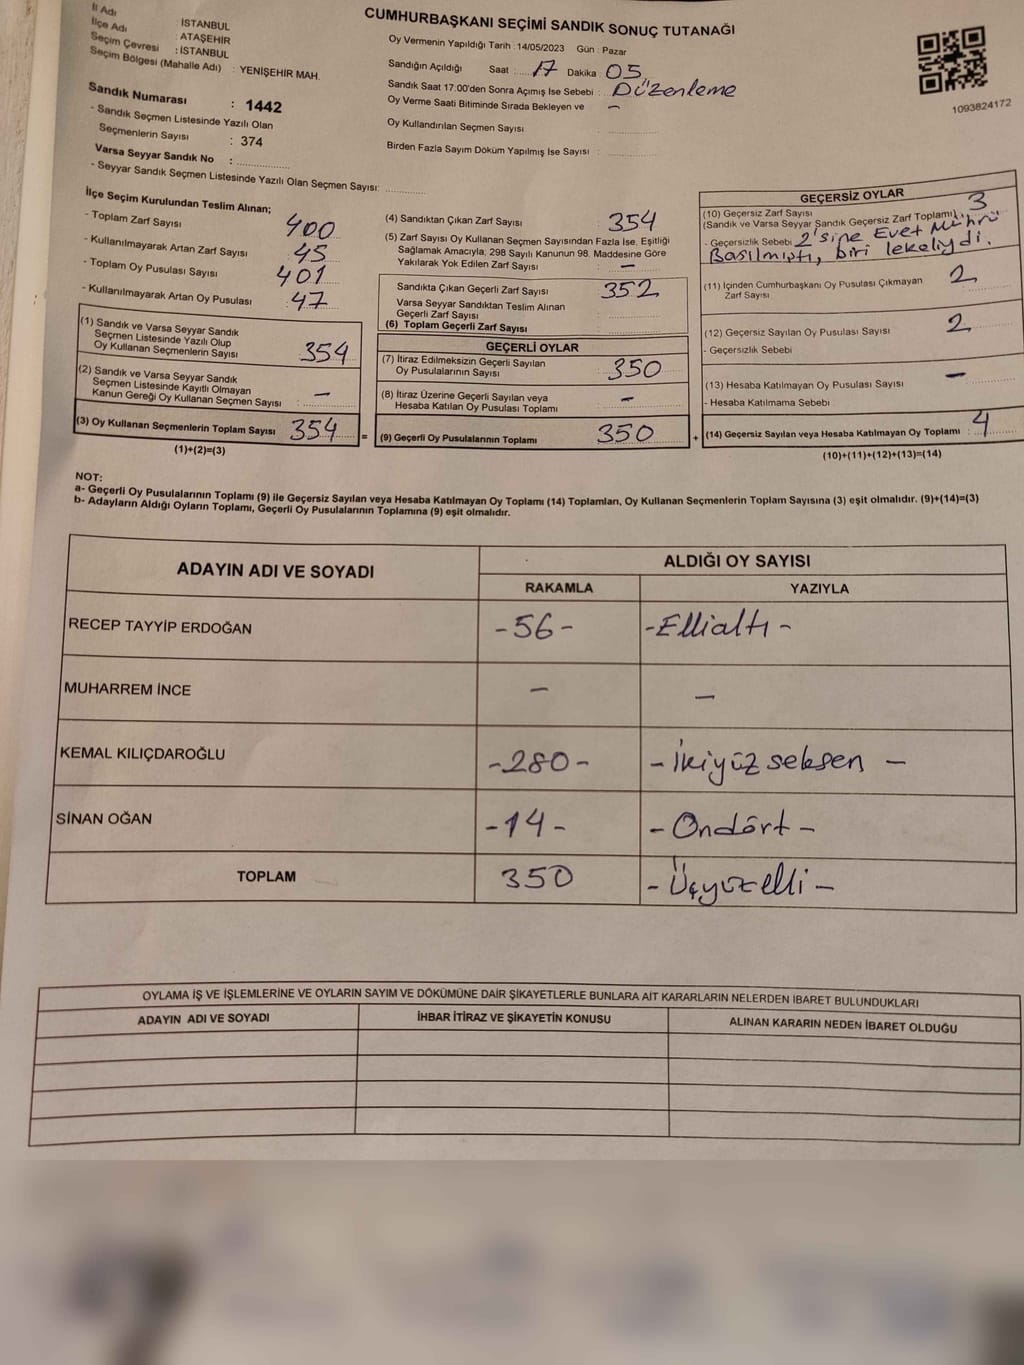 CUMHURBAŞKANI SEÇİMİ SANDIK SONUÇ TUTANAĞI
İl Adı : İSTANBUL
İlçe Adı : ATAŞEHİR
Seçim Çevresi : İSTANBUL
Seçim Bölgesi (Mahalle Adı) : YENİŞEHİR MAH.
Sandık Numarası : 1442
- Sandık Seçmen Listesinde Yazılı Olan
Seçmenlerin Sayısı : 374
Varsa Seyyar Sandık No :
- Seyyar Sandık Seçmen Listesinde Yazılı Olan Seçmen Sayısı:
Oy Vermenin Yapıldığı Tarih : 14/05/2023 Gün : Pazar
Sandığın Açıldığı Saat : 17 Dakika : 05
Sandık Saat 17:00'den Sonra Açımış İse Sebebi : Düzenleme
Oy Verme Saati Bitiminde Sırada Bekleyen ve –
Oy Kullandırılan Seçmen Sayısı :
Birden Fazla Sayım Döküm Yapılmış İse Sayısı :
1093824172
İlçe Seçim Kurulundan Teslim Alınan;
- Toplam Zarf Sayısı : 400
- Kullanılmayarak Artan Zarf Sayısı : 45
- Toplam Oy Pusulası Sayısı : 401
- Kullanılmayarak Artan Oy Pusulası : 47
(1) Sandık ve Varsa Seyyar Sandık
Seçmen Listesinde Yazılı Olup
Oy Kullanan Seçmenlerin Sayısı : 354
(2) Sandık ve Varsa Seyyar Sandık
Seçmen Listesinde Kayıtlı Olmayan
Kanun Gereği Oy Kullanan Seçmen Sayısı : –
(3) Oy Kullanan Seçmenlerin Toplam Sayısı : 354
(1)+(2)=(3)
(4) Sandıktan Çıkan Zarf Sayısı : 354
(5) Zarf Sayısı Oy Kullanan Seçmen Sayısından Fazla İse, Eşitliği
Sağlamak Amacıyla; 298 Sayılı Kanunun 98. Maddesine Göre
Yakılarak Yok Edilen Zarf Sayısı : –
Sandıkta Çıkan Geçerli Zarf Sayısı : 352
Varsa Seyyar Sandıktan Teslim Alınan
Geçerli Zarf Sayısı :
(6) Toplam Geçerli Zarf Sayısı :
GEÇERLİ OYLAR
(7) İtiraz Edilmeksizin Geçerli Sayılan
Oy Pusulalarının Sayısı : 350
(8) İtiraz Üzerine Geçerli Sayılan veya
Hesaba Katılan Oy Pusulası Toplamı : –
= (9) Geçerli Oy Pusulalarının Toplamı : 350
GEÇERSİZ OYLAR
(10) Geçersiz Zarf Sayısı
(Sandık ve Varsa Seyyar Sandık Geçersiz Zarf Toplamı) : 3
- Geçersizlik Sebebi 2'sine Evet Mührü
Basılmıştı, biri lekeliydi.
(11) İçinden Cumhurbaşkanı Oy Pusulası Çıkmayan
Zarf Sayısı : 2
(12) Geçersiz Sayılan Oy Pusulası Sayısı : 2
- Geçersizlik Sebebi
(13) Hesaba Katılmayan Oy Pusulası Sayısı : –
- Hesaba Katılmama Sebebi
+ (14) Geçersiz Sayılan veya Hesaba Katılmayan Oy Toplamı : 4
(10)+(11)+(12)+(13)=(14)
NOT:
a- Geçerli Oy Pusulalarının Toplamı (9) ile Geçersiz Sayılan veya Hesaba Katılmayan Oy Toplamı (14) Toplamları, Oy Kullanan Seçmenlerin Toplam Sayısına (3) eşit olmalıdır. (9)+(14)=(3)
b- Adayların Aldığı Oyların Toplamı, Geçerli Oy Pusulalarının Toplamına (9) eşit olmalıdır.
ADAYIN ADI VE SOYADI ALDIĞI OY SAYISI
RAKAMLA YAZIYLA
RECEP TAYYİP ERDOĞAN -56- -Ellialtı-
MUHARREM İNCE – –
KEMAL KILIÇDAROĞLU -280- - İkiyüz seksen -
SİNAN OĞAN -14- - Ondört -
TOPLAM 350 - Üçyüzelli -
OYLAMA İŞ VE İŞLEMLERİNE VE OYLARIN SAYIM VE DÖKÜMÜNE DAİR ŞİKAYETLERLE BUNLARA AİT KARARLARIN NELERDEN İBARET BULUNDUKLARI
ADAYIN ADI VE SOYADI İHBAR İTİRAZ VE ŞİKAYETİN KONUSU ALINAN KARARIN NEDEN İBARET OLDUĞU